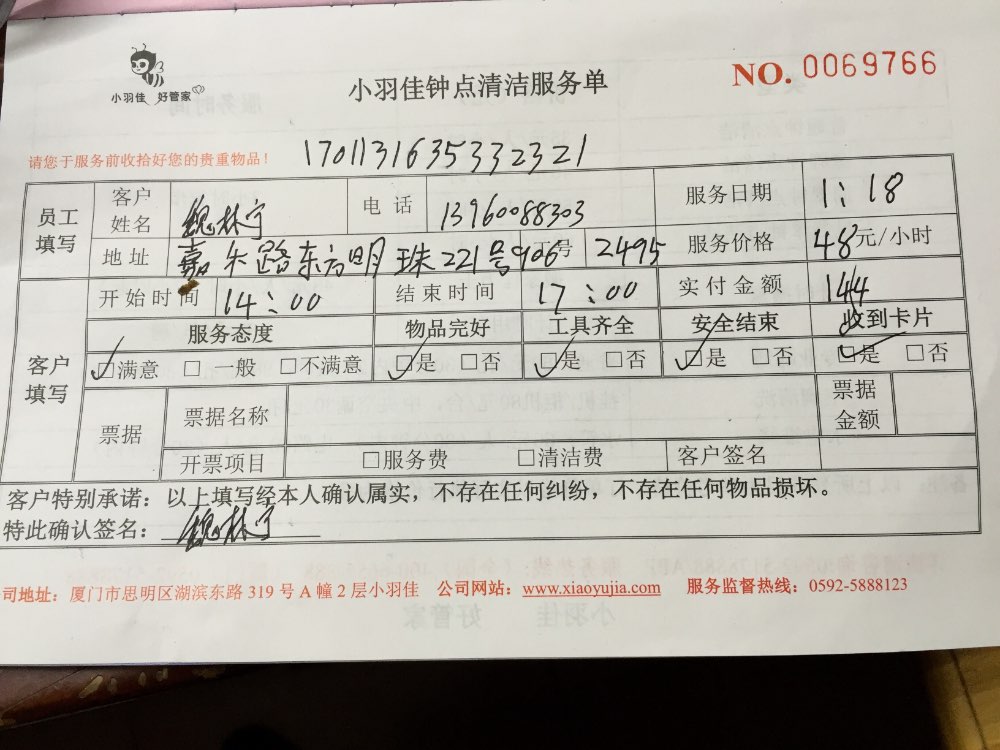 小羽佳 好管家
小羽佳钟点清洁服务单
NO. 0069766
请您于服务前收拾好您的贵重物品!
17011316353332321
员工填写 客户姓名 魏林宁 电 话 13960088303 服务日期 1:18
地址 嘉禾路东方明珠221号906 工号 2495 服务价格 48元/小时
客户填写 开始时间 14:00 结束时间 17:00 实付金额 144
服务态度 物品完好 工具齐全 安全结束 收到卡片
☑满意 □ 一般 □不满意 ☑是 □否 ☑是 □否 ☑是 □否 ☑是 □否
票据 票据名称 票据金额
开票项目 □服务费 □清洁费 客户签名
客户特别承诺:以上填写经本人确认属实,不存在任何纠纷,不存在任何物品损坏。
特此确认签名: 魏林宁
司地址:厦门市思明区湖滨东路 319 号 A 幢 2 层小羽佳 公司网站:www.xiaoyujia.com 服务监督热线:0592-5888123